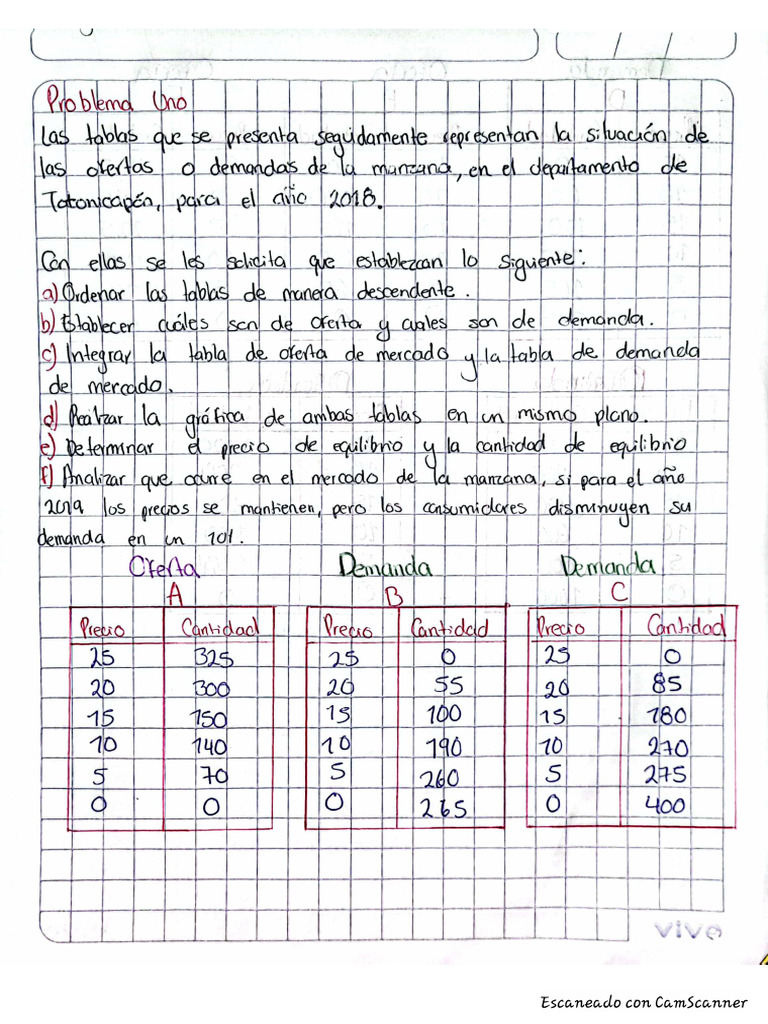 Problema Uno
Las tablas que se presenta seguidamente representan la situación de
las ofertas o demandas de la manzana, en el departamento de
Totonicapén, para el año 2018.
Con ellas se les solicita que establezcan lo siguiente:
a) Ordenar las tablas de manera descendente.
b) Establecer cuáles son de oferta y cuales son de demanda.
c) Integrar la tabla de oferta de mercado y la tabla de demanda
de mercado.
d) Realizar la gráfica de ambas tablas en un mismo plano.
e) Determinar el precio de equilibrio y la cantidad de equilibrio
f) Analizar que ocurre en el mercado de la manzana, si para el año
2019 los precios se mantienen, pero los consumidores disminuyen su
demanda en un 10%.
Oferta Demanda Demanda
A B C
Precio Cantidad Precio Cantidad Precio Cantidad
25 325 25 0 25 0
20 300 20 55 20 85
15 150 15 100 15 180
10 140 10 190 10 270
5 70 5 260 5 275
0 0 0 265 0 400
vive
Escaneado con CamScanner